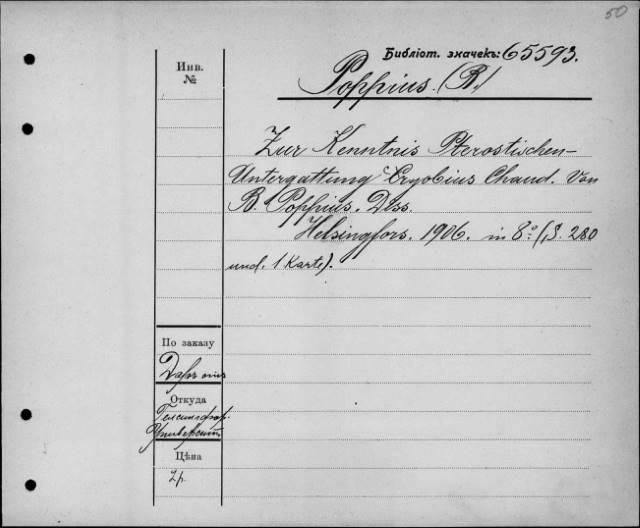 50
Библіот. значекъ: 65593.
Инв.
№
Poppius. (B.)
Zur Kenntnis Pterostischen-
Untergattung Cryobius Chaud. Von
B. Poppius. Diss.
Helsingfors. 1906. in 8º. (S. 280
und. 1 Karte).
По заказу
Даръ
Откуда
Гельсингфор.
Университ.
Цѣна
2 р.